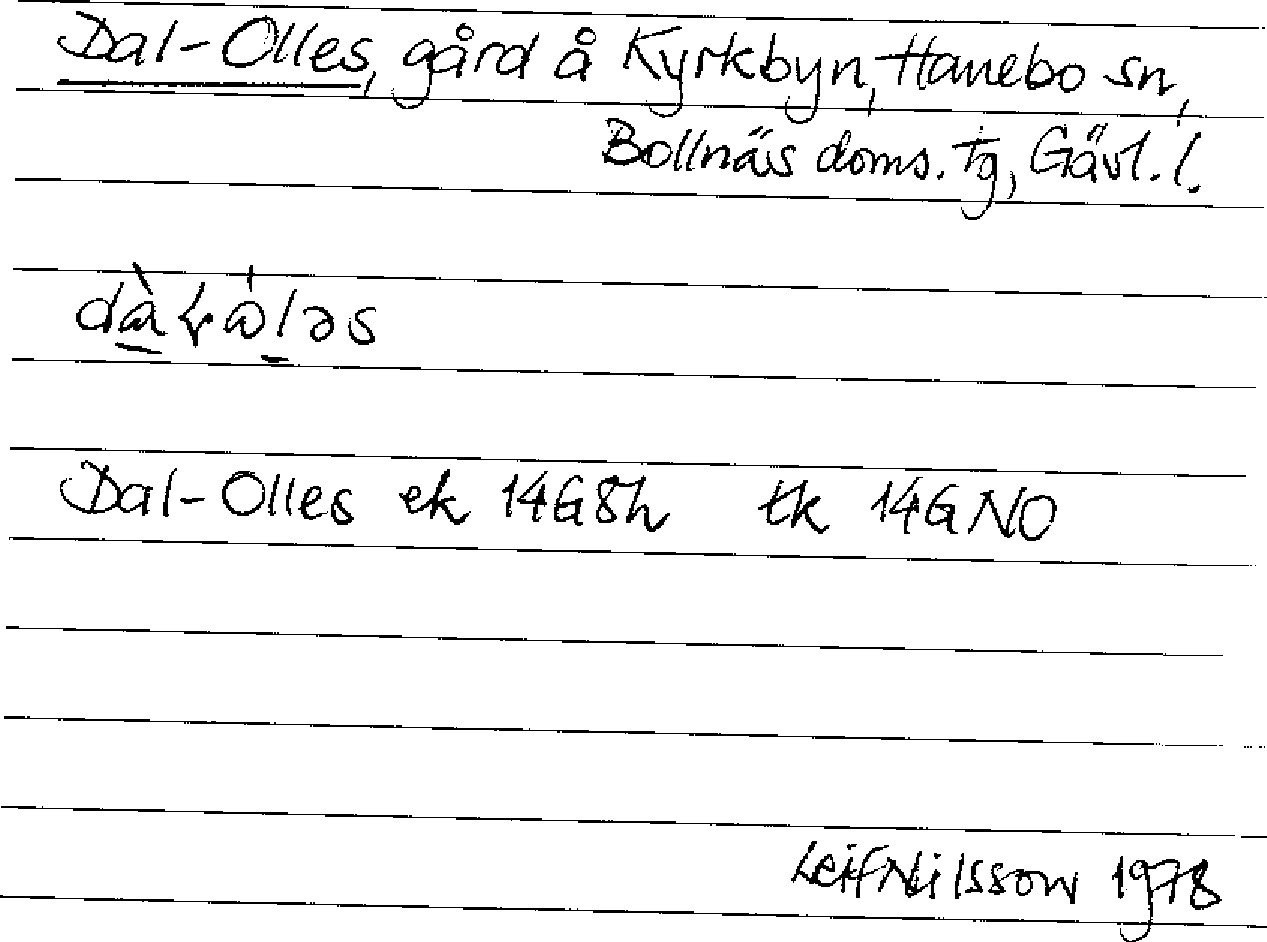 Dal-Olles, gård å Kyrkbyn, Hanebo sn,
Bollnäs doms. tg, Gävl. l.
Dal-Olles ek 14G8h tk 14GNO
Leif Nilsson 1978